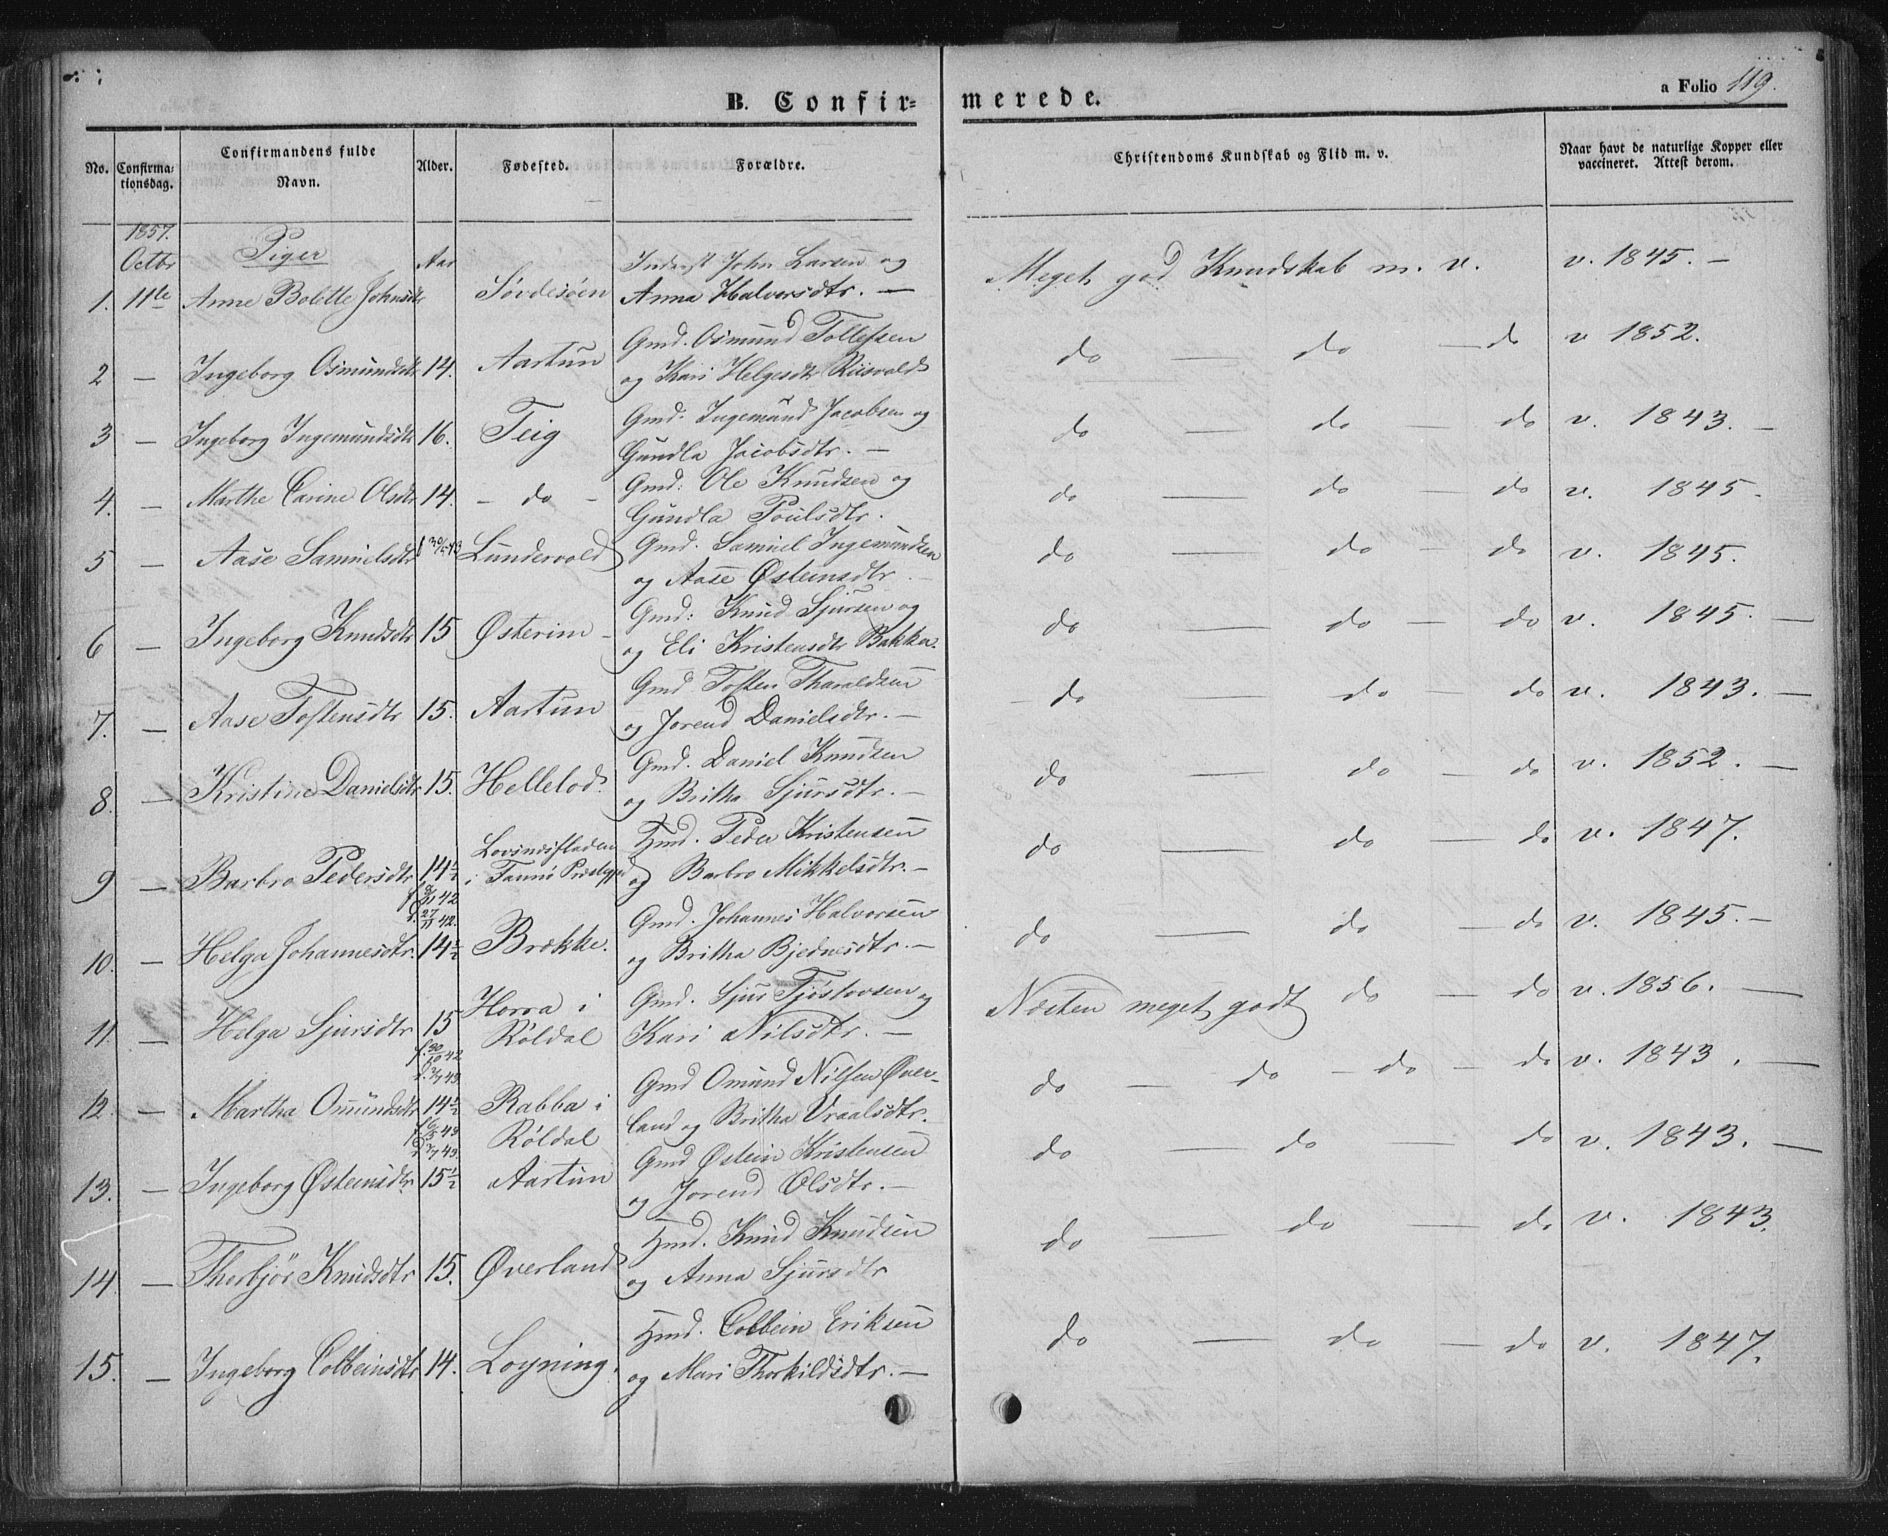 B. Confir=merede.
a Folio 119.
No. Confirmationsdag. Confirmandens fulde Navn. Alder. Fødested. Forældre. Christendoms Kundskab og Flid m. v. Naar havt de naturlige Kopper eller vaccineret. Attest derom.
1857.
Octbr Piger Aar Inderst John Larsen og
1. 11te Anne Bolette Johnsdtr Anna Halvorsdtr. — Meget god Kundskab m. v. v. 1845. —
Gmd. Osmund Tollefsen
2 — Ingeborg Osmundsdtr 14. Aartun og Kari Helgesdtr do — do — do v 1852.
Gmd. Ingemund Jacobsen og
3 — Ingeborg Ingemundsdtr 16. Teig Gundla Jacobsdtr. — do — do — do v. 1843. —
Gmd: Ole Knudsen og
4. — Marthe Carine Olsdtr 14. — do — Gundla Poulsdtr. do — do — do v. 1845.
Gmd. Samuel Ingemundsen
5 — Aase Samuelsdtr Lundervold og Aase Østeinsdtr. — do — do — do v. 1845.
Gmd: Knud Sjursen og
6 — Ingeborg Knudsdtr 15 Østerim — og Eli Kristensdtr Bakka. do — do — do v. 1845. —
Gmd Tosten Tharaldsen
7. — Aase Tostensdtr 15. Aartun og Jorend Danielsdtr. — — do — do — do v. 1843. —
Gmd. Daniel Knudsen
8. — Kristine Danielsdtr 15. og Britha Sjursdtr. — do — do — do v. 1852. —
Hmd. Peder Kristensen
9 — Barbro Pedersdtr 14½ og Barbro Mikkelsdtr. — do — do — do v. 1847.
Gmd. Johannes Halvorsen
10. — Helga Johannesdtr. 14½ Brække. og Britha Bjednesdtr. — do — do — do v. 1845. —
Horra i Gmd. Sjur Tjøstovsen og
11. — Helga Sjursdtr 15 Røldal Kari Nilsdtr. — Næsten meget godt do — do v. 1856. —
Gmd Omund Nilsen Øver-
12. — Martha Omundsdtr 14½ Rabba i land og Britha Vraalsdtr. do — do — do — do v. 1843. —
Røldal Gmd Østein Kristensen
13. — Ingeborg Østeinsdtr. 15½ Aartun og Jorend Olsdtr. — do — do — do v. 1843. —
Hmd. Knud Knudsen
14. — Thorbjør Knudsdtr 15. Øverland og Anna Sjursdtr do — do — do v. 1843.
Hmd. Colbein Eriksen
15. — Ingeborg Colbeinsdtr 14. Loyning. og Mari Thorkildsdtr. — do — do — do v. 1847.